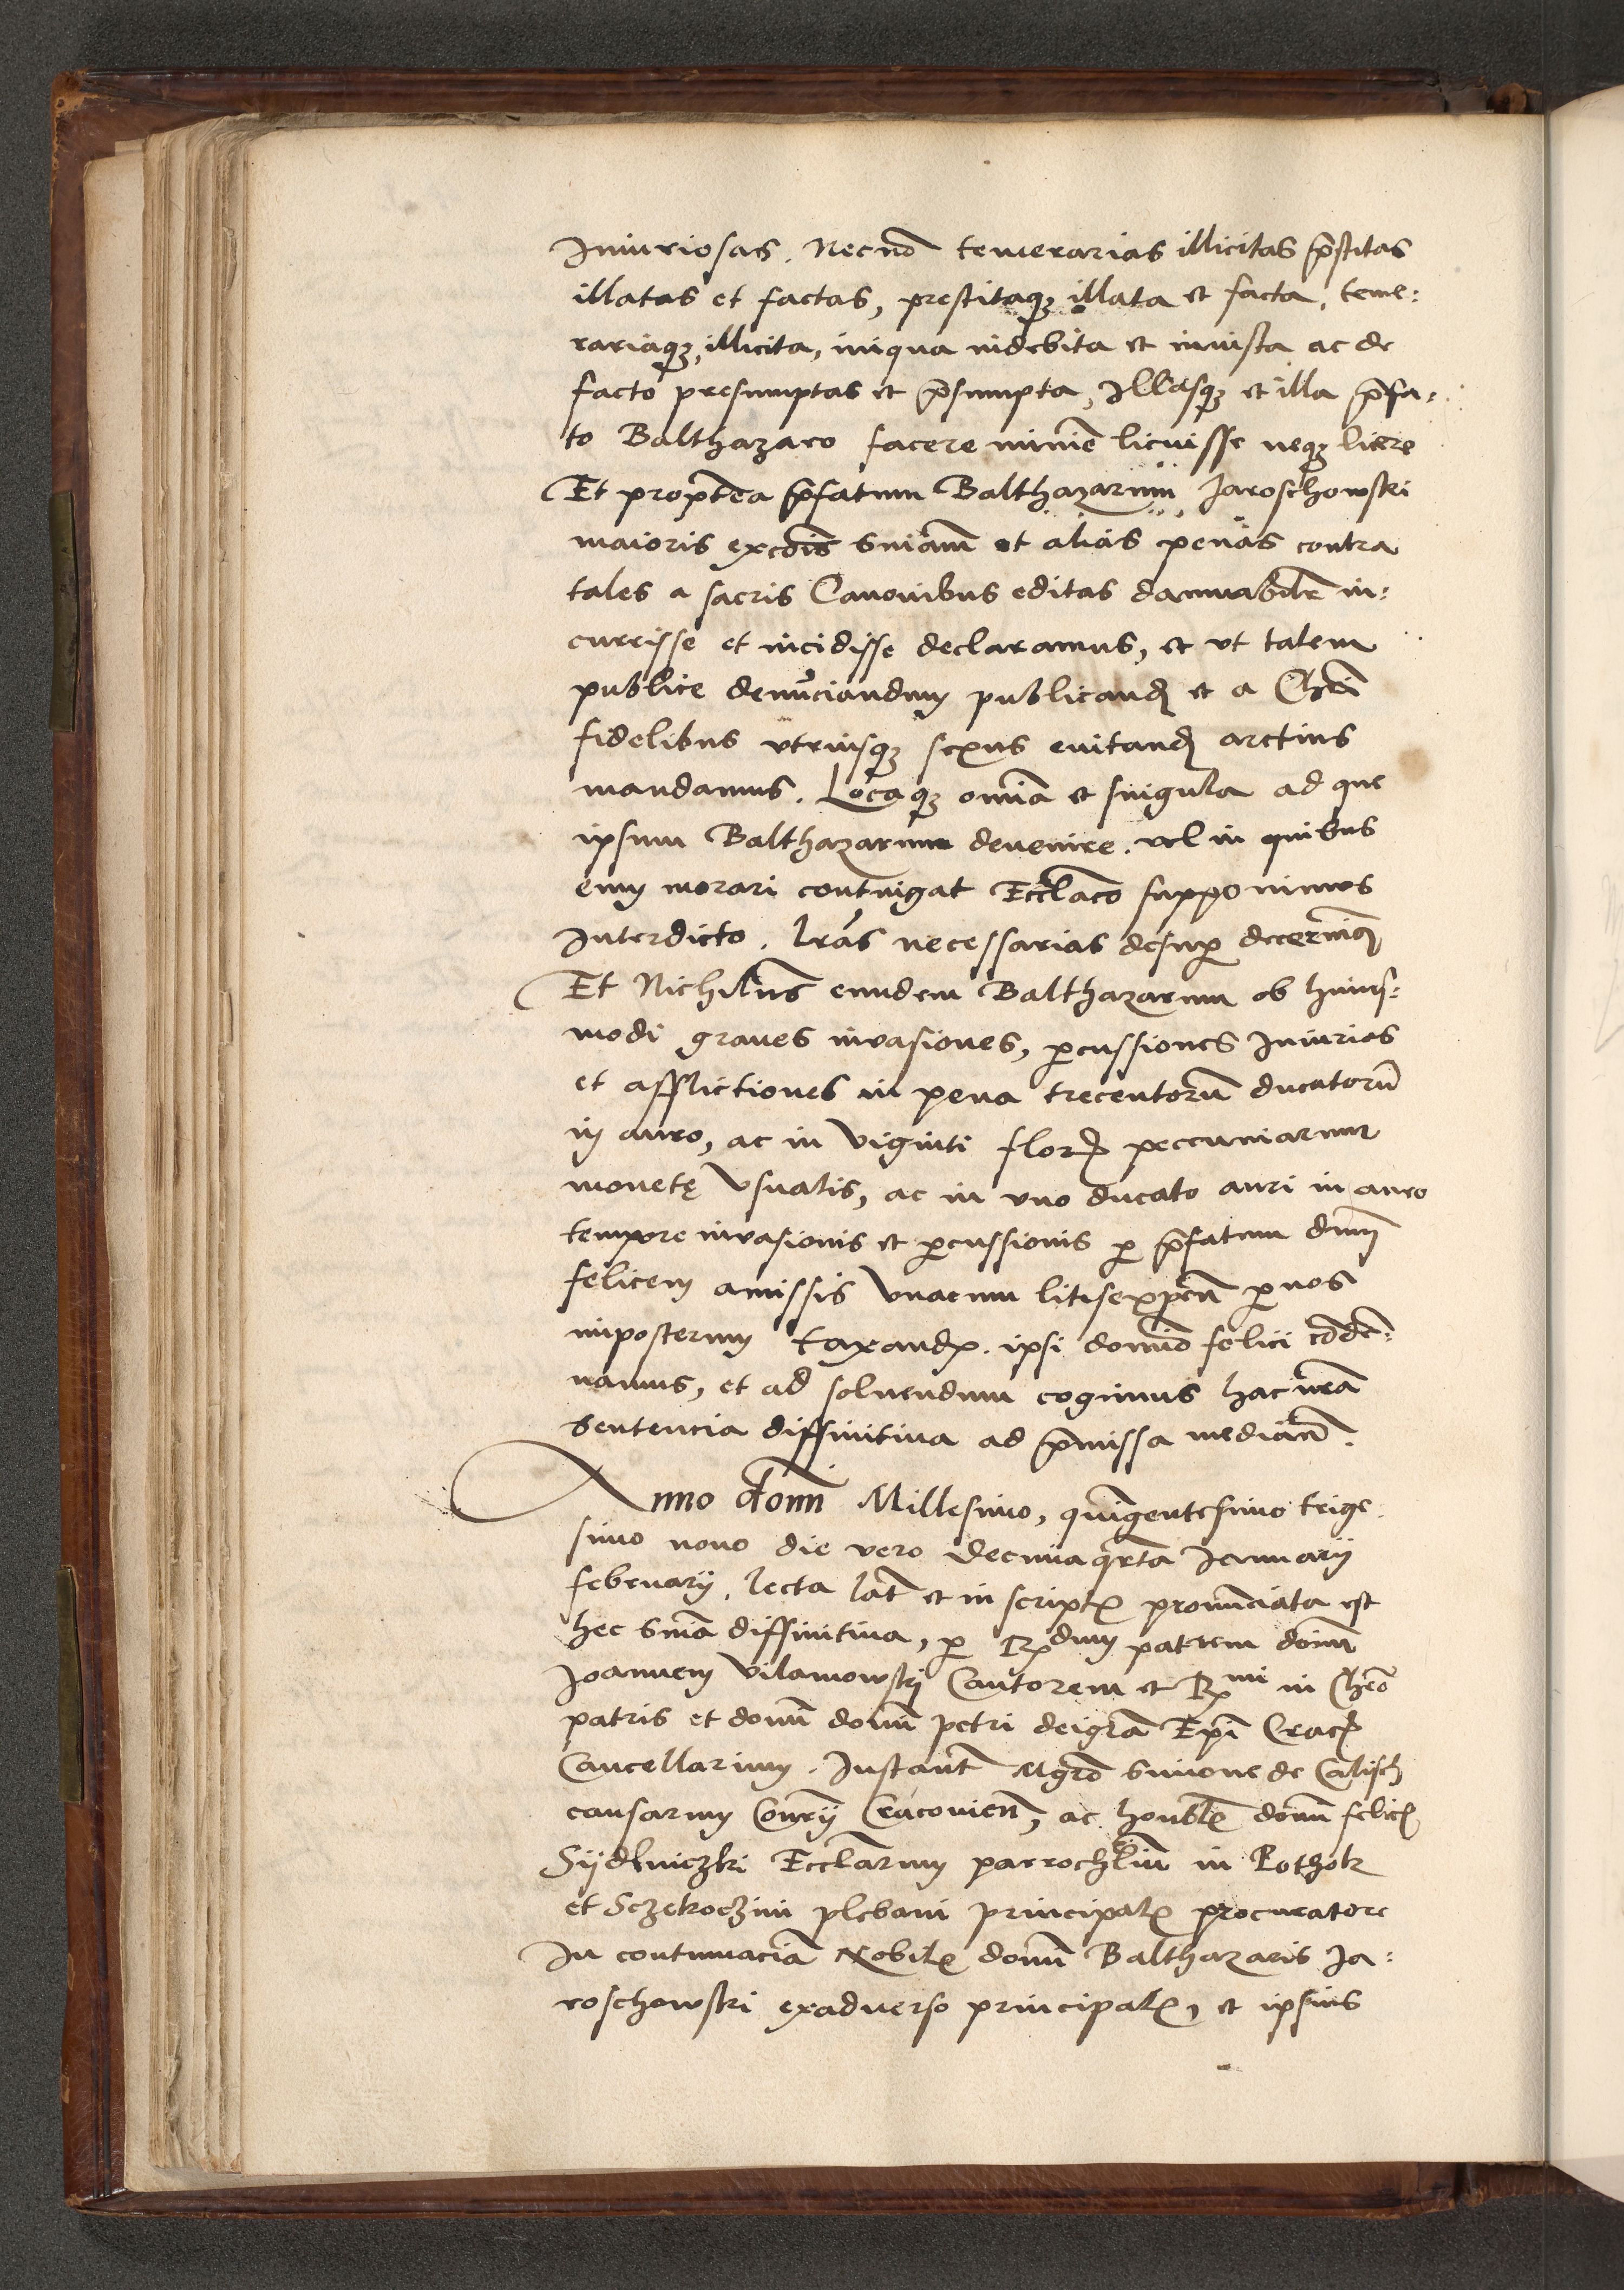 Iniuriosas. Necnō temerarias illicitas p̄stitas
illatas et factas, prestitaqꝫ illata et facta, teme:
rariaqꝫ, illicita, iniqua indebita et iniusta ac de
facto presumptas et p̄sumpta, Illasqꝫ et illa p̄fa:
to Balthazaro facere minīe licuisse neqꝫ licere
Et propt̄ea p̄fatum Balthazarum Jaroschowski
maioris excōis sniam̄ et alias penas contra
tales a sacris Canonibus editas damnabilr̄ in:
currisse et incidisse declaramus, et vt talem
publice denūciandum publicand̄ et a Chr̄i
fidelibus vtriusqꝫ sexus euitand̄ arctius
mandamus. Locaqꝫ omīa et singula ad que
ipsum Balthazarum deuenire. vel in quibus
eum morari contingat Eccl̄aco supponimus
Interdicto. Lrās necessarias desuꝑ decernim̄
Et Nichilmī̄s eundem Balthazarum ob huius:
modi graues inuasiones, ꝑcussiones Iniurias
et afflictiones in pena trecentorū ducatorū
in auro, ac in viginti flor̄ peccuniarum
monetę vsualis, ac in vno ducato auri in auro
tempore inuasionis et ꝑcussionis ꝑ p̄fatum dnm̄
felicem amissis vnacum litisexpēn̄ ꝑ nos
imposterum taxand̄. ipsi domiō felici cōdē:
namus, et ad soluendum cogimus hac nrā
Sentencia diffinitiua ad p̄missa mediān̄.
Anno domī Millesimo, quīgentesimo trige
simo nono die vero decima qrta Januarij
februarij, lecta lat̄ et in script̄ pronūciata est
hec snīa diffinitiua, ꝑ Rdum patrem domī
Joannem Vilamowskj Cantorem et Rmi in Chrō
patris et domī domī petri dei grā Epī Crac̄
Cancellarium. Instant̄ Mgrō Simone de Calisch
causarum Consrij Cracouien̄, ac honblē domī felic̄
Sijdlniczki Ecclārum parrochliū in Pothok
et Sczekoczini plebani principal̄ procuratore
In contumaciā Nobil̄ domī Balthazaris Ja:
roschowski exaduerso principal̄, et ipsius